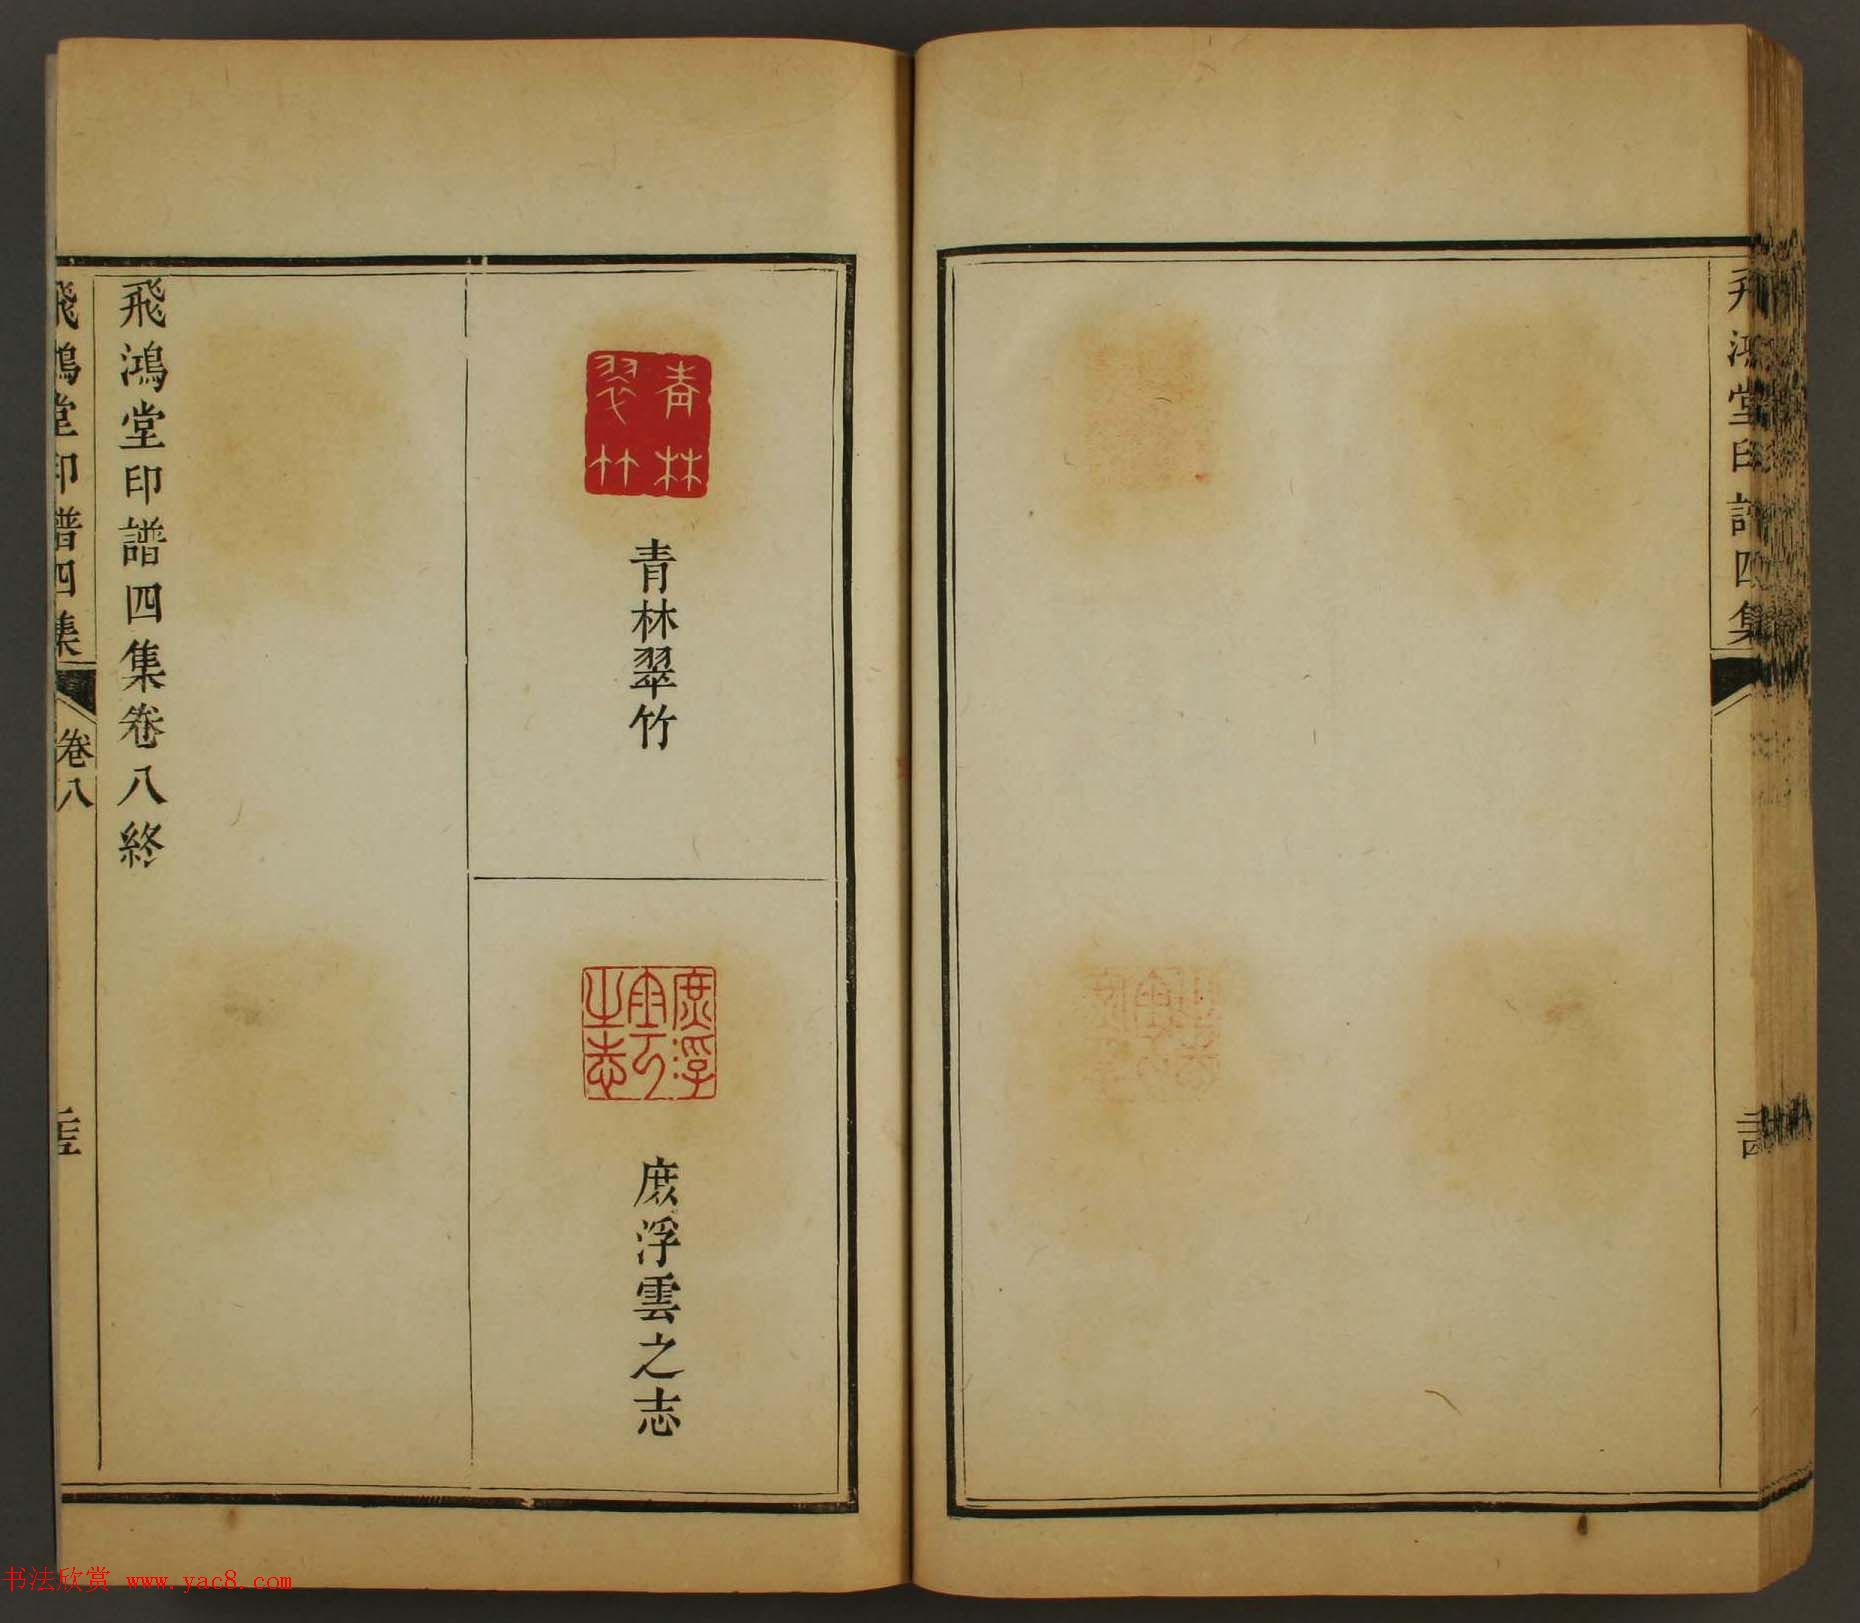 飛鴻堂印譜四集
青林翠竹
青林翠竹
庶浮雲之志
庶浮雲之志
飛鴻堂印譜四集卷八終
飛鴻堂印譜四集
卷八
书法欣赏 www.yac8.com